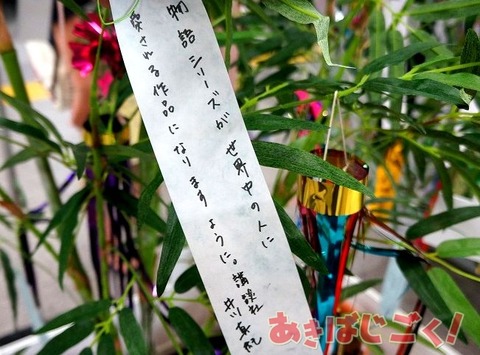 物語シリーズが世界中の人に
愛される作品になりますように。
講談社
あきばじごく!